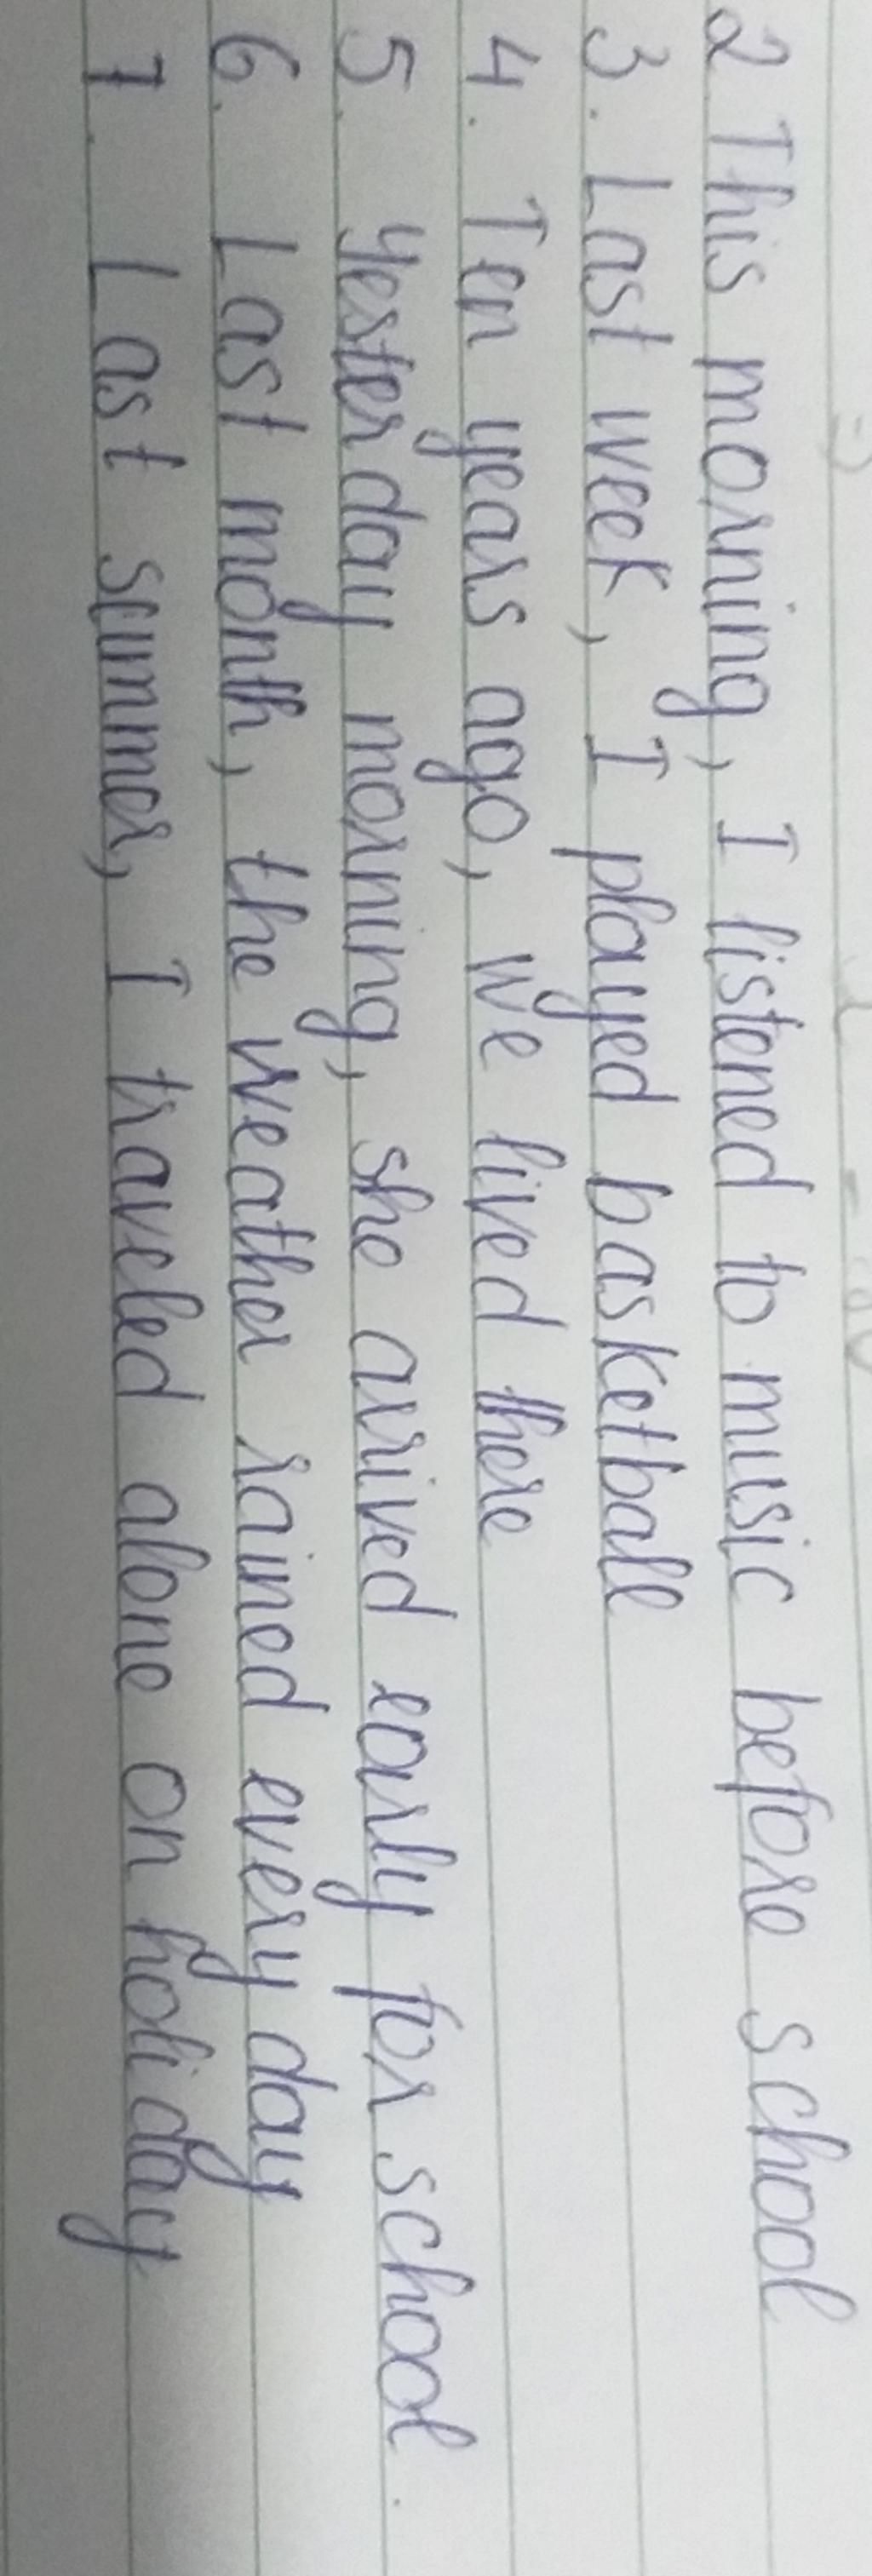 2 This morning, I listened to music before school
3. Last week, I played basketball
4. Ten years ago, we lived there
5. Yesterday morning, she arrived early for school.
6. Last month, the weather rained every day
7. Last summer, I traveled alone on holiday